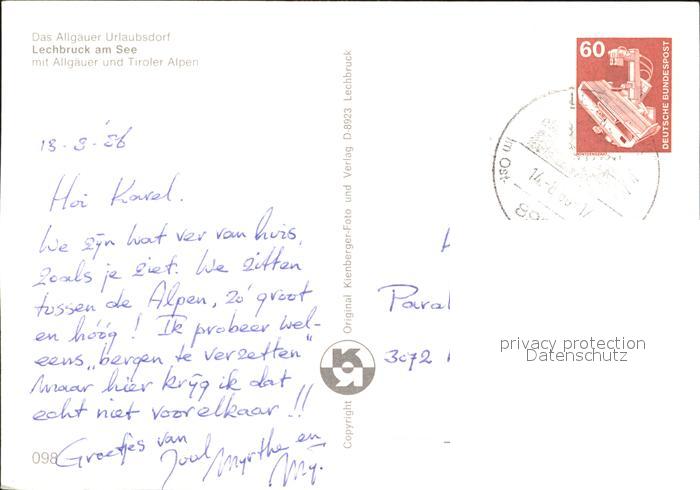 Das Allgäuer Urlaubsdorf
Lechbruck am See
mit Allgäuer und Tiroler Alpen
13-8-'86
Hoi Karel.
We zijn wat ver van huis,
zoals je ziet. We zitten
tussen de Alpen, zó groot
en hóóg! Ik probeer wel-
eens „bergen te verzetten"
maar hier krijg ik dat
echt niet voorelkaar!!
Groetjes van
Myrthe en
My.
098
Copyright Original Kienberger-Foto und Verlag D-8923 Lechbruck
60
DEUTSCHE BUNDESPOST
im Ost-
Paral
3072
privacy protection
Datenschutz